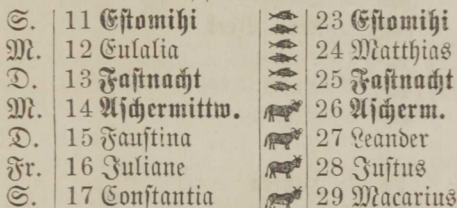 S. 11 Estomihi 23 Estomihi
M. 12 Eulalia 24 Matthias
D. 13 Fastnacht 25 Fastnacht
M. 14 Aschermittw. 26 Ascherm.
D. 15 Faustina 27 Leander
Fr. 16 Juliane 28 Justus
S. 17 Constantia 29 Macarius